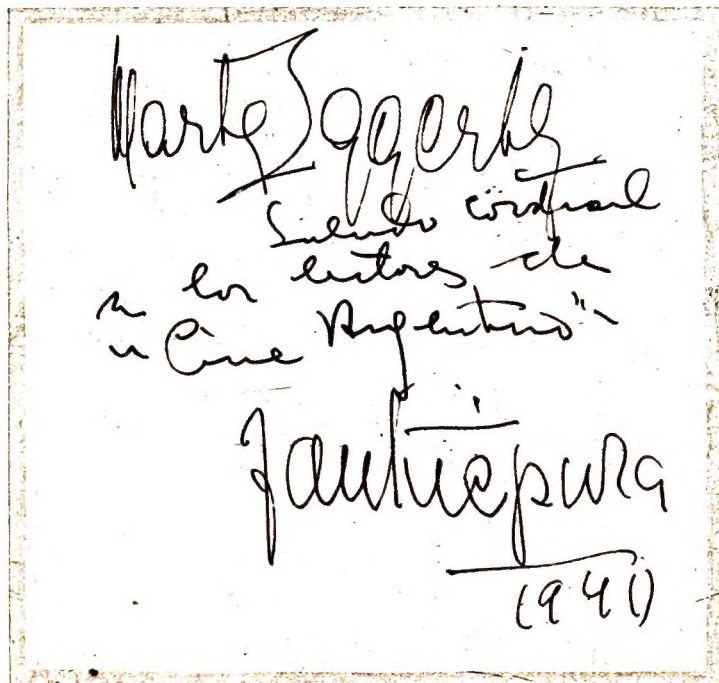 Marta Eggerth
Saludo cordial
a los lectores de
"Cine Argentino"
Jan Kiepura
1941